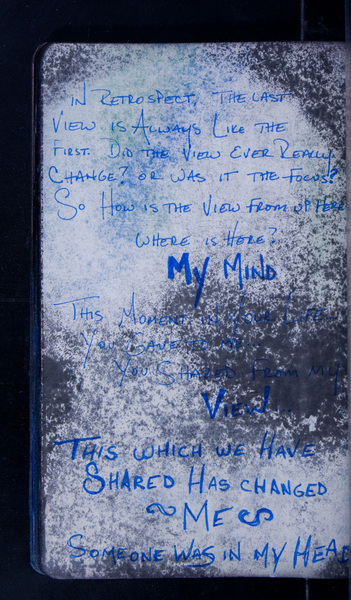 IN RETROSPECT, THE LAST
VIEW IS ALWAYS LIKE THE
FIRST. DID THE VIEW EVER REALLY
CHANGE? OR WAS IT THE FOCUS?
SO HOW IS THE VIEW FROM UP HERE
WHERE IS HERE?
MY MIND
THIS MOMENT IN YOUR LIFE
YOU GAVE TO ME...
YOU SHARED FROM MY
VIEW...
THIS WHICH WE HAVE
SHARED HAS CHANGED
~ME~
SOMEONE WAS IN MY HEAD